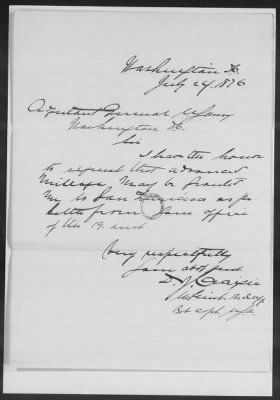 Washington D.C.
July 24, 1876
Adjutant General US Army
Washington D.C.
Sir
I have the honor
to request that advanced
Mileage may be granted
me to San Francisco as per
letter from your office
of the 19 inst
Very respectfully
Your obt
D. J.